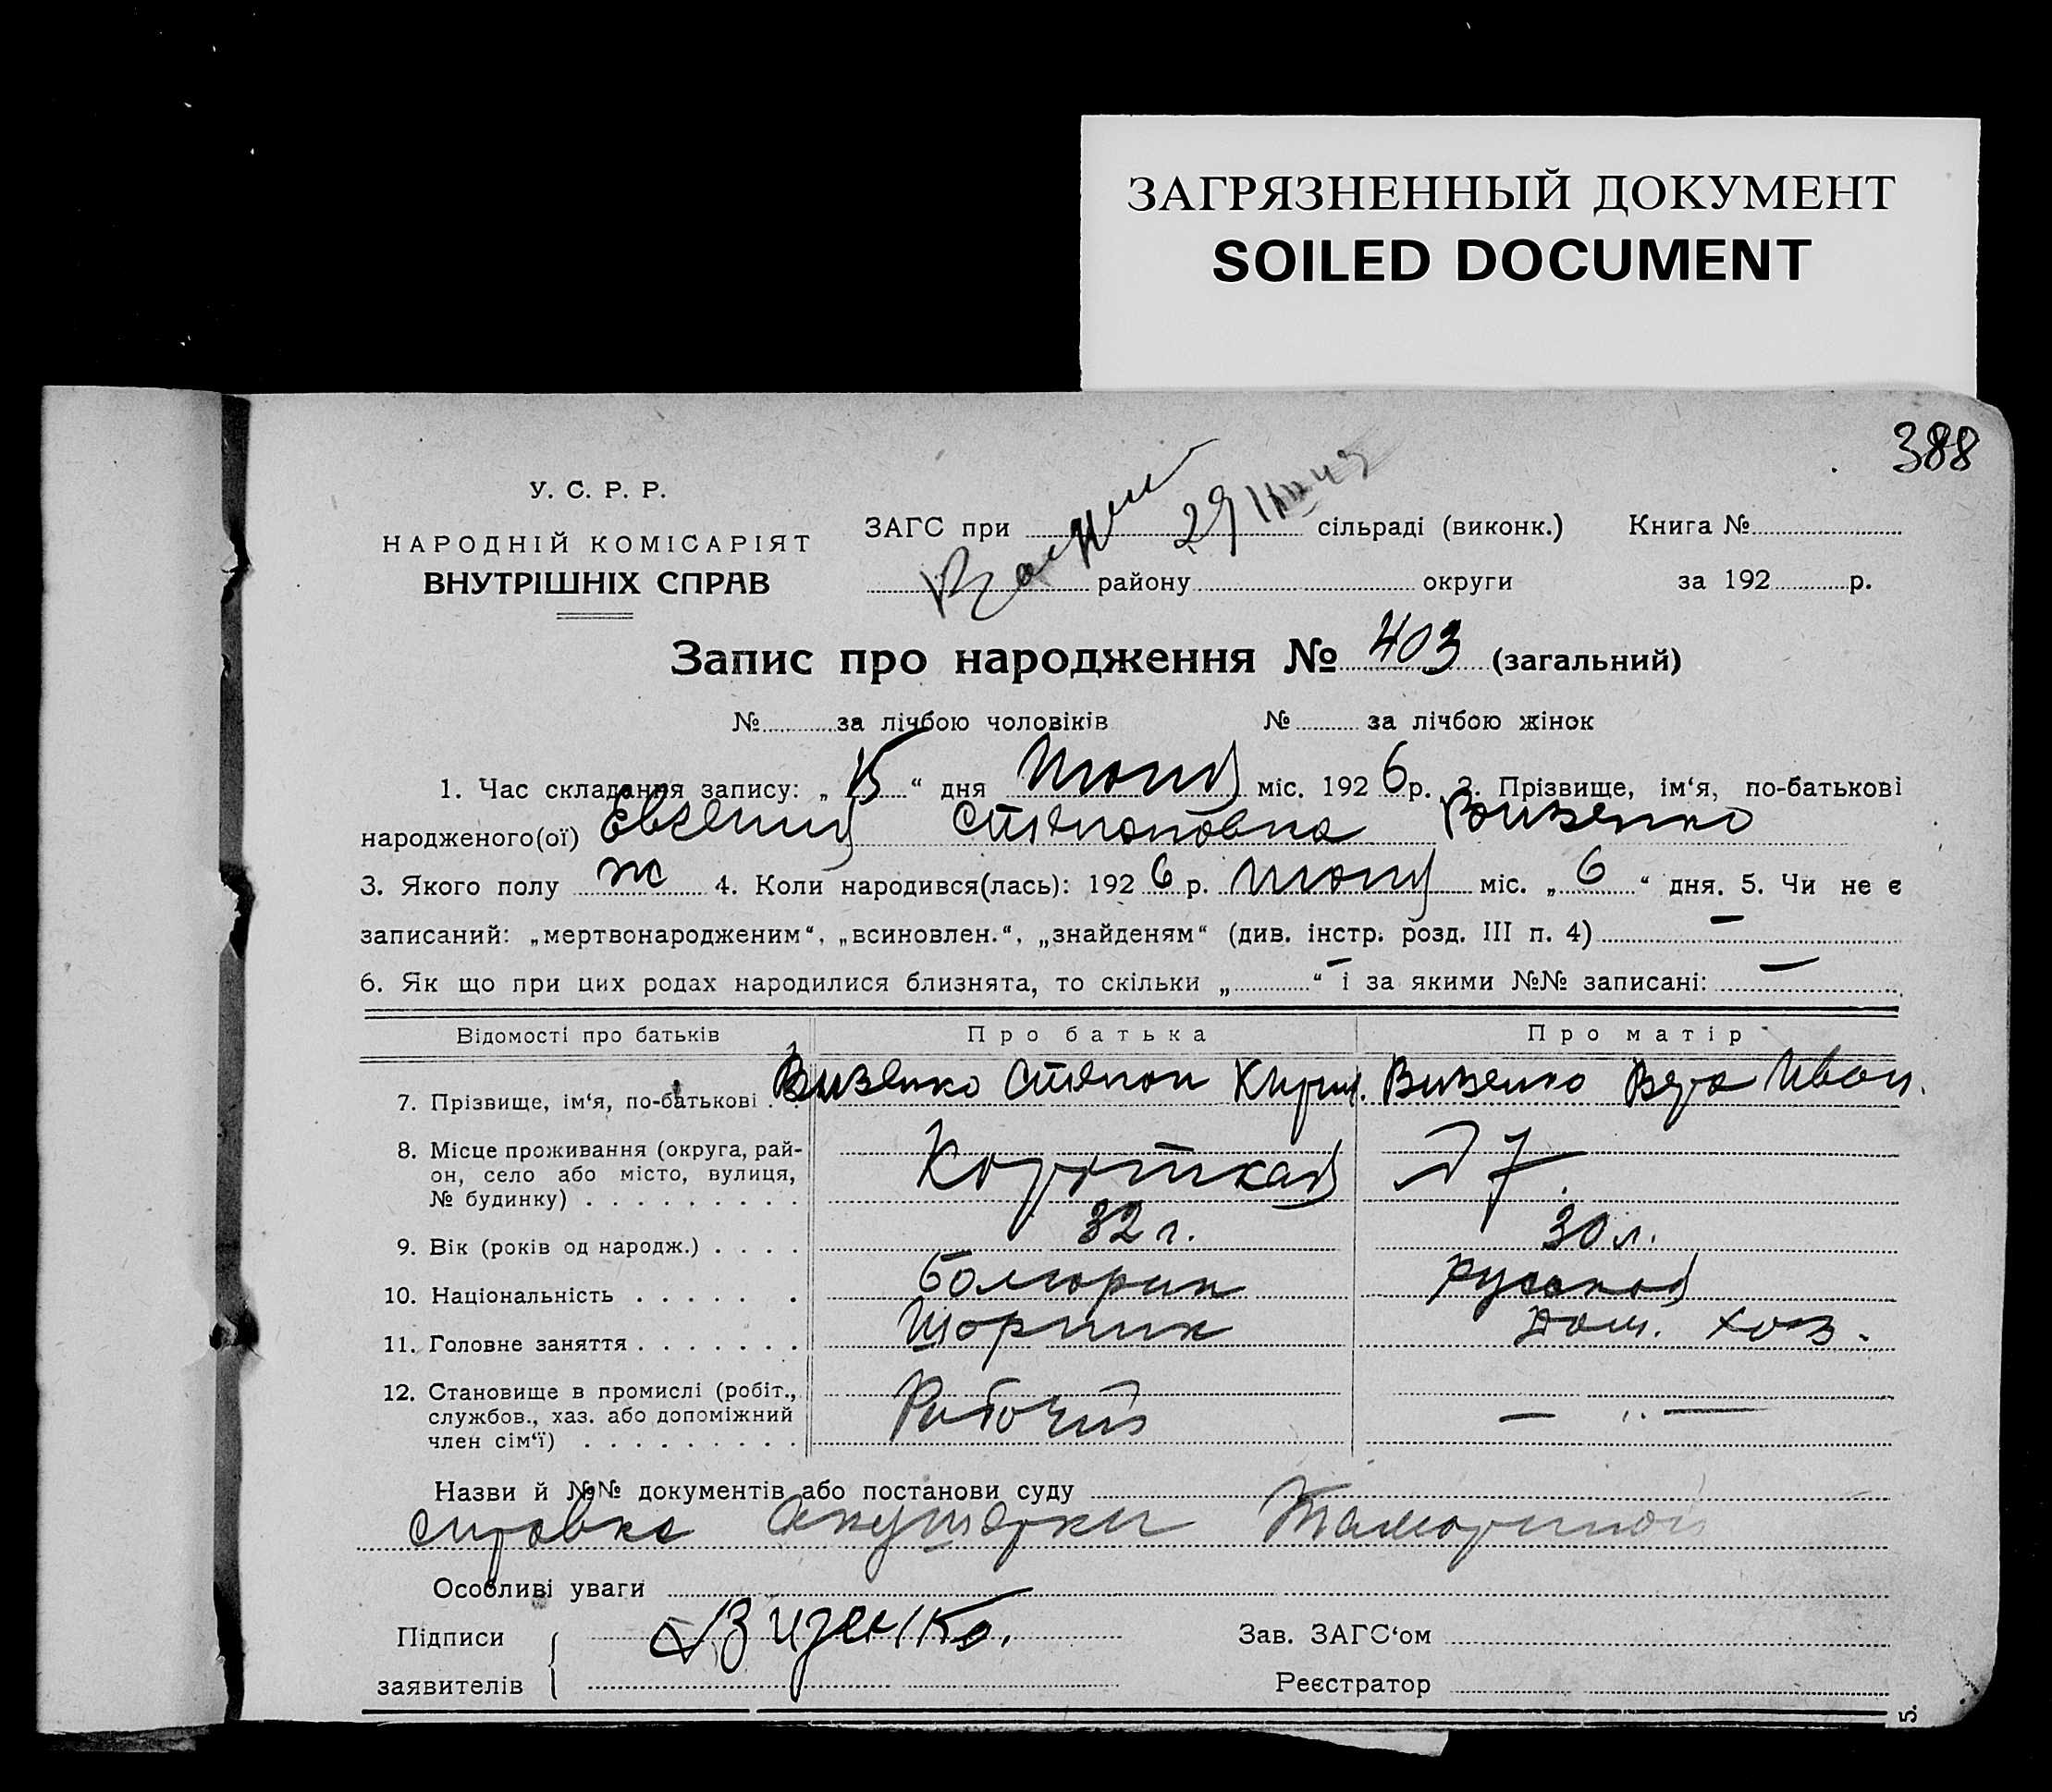 ЗАГРЯЗНЕННЫЙ ДОКУМЕНТ
SOILED DOCUMENT
388
У. С. Р. Р.
НАРОДНІЙ КОМІСАРІЯТ
ВНУТРІШНІХ СПРАВ
ЗАГС при 29 сільраді (виконк.) Книга №
району округи за 192 р.
Запис про народження № 403 (загальний)
№ за лічбою чоловіків № за лічбою жінок
1. Час складання запису: „ 15 “ дня Июня міс. 192 6 р. 2. Прізвище, ім‘я, по-батькові
народженого(ої) Евгения Степановна Визенко
3. Якого полу ж 4. Коли народився(лась): 192 6 р. Июня міс. „ 6 “ дня. 5. Чи не є
записаний: „мертвонародженим“, „всиновлен.“, „знайденям“ (див. інстр. розд. III п. 4) —
6. Як що при цих родах народилися близнята, то скільки „ — “ і за якими №№ записані: —
Відомості про батьків Про батька Про матір
7. Прізвище, ім‘я, по-батькові . . Визенко Степан Кирил. Визенко Вера Иван.
8. Місце проживання (округа, рай-
он, село або місто, вулиця, Короткая 27.
№ будинку) . . . . . . . . .
9. Вік (років од народж.) . . . . 32 г. 30 л.
10. Національність . . . . . . болгарин русская
11. Головне заняття . . . . . . . Шорник Дом. хоз.
12. Становище в промислі (робіт.,
службов., хаз. або допоміжний Рабочий — „ —
член сім‘ї) . . . . . . . . .
Назви й №№ документів або постанови суду
справка акушерки
Особливі уваги
Підписи Визенко. Зав. ЗАГС‘ом
заявителів Реєстратор
5.